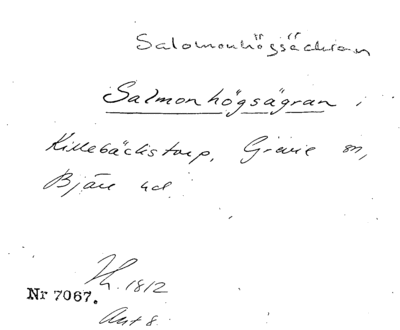 Salomonhögsäckran
Salmonhögsägran i
Killebäckstorp, Grevie sn,
Bjäre hd
Nr 7067.
1812